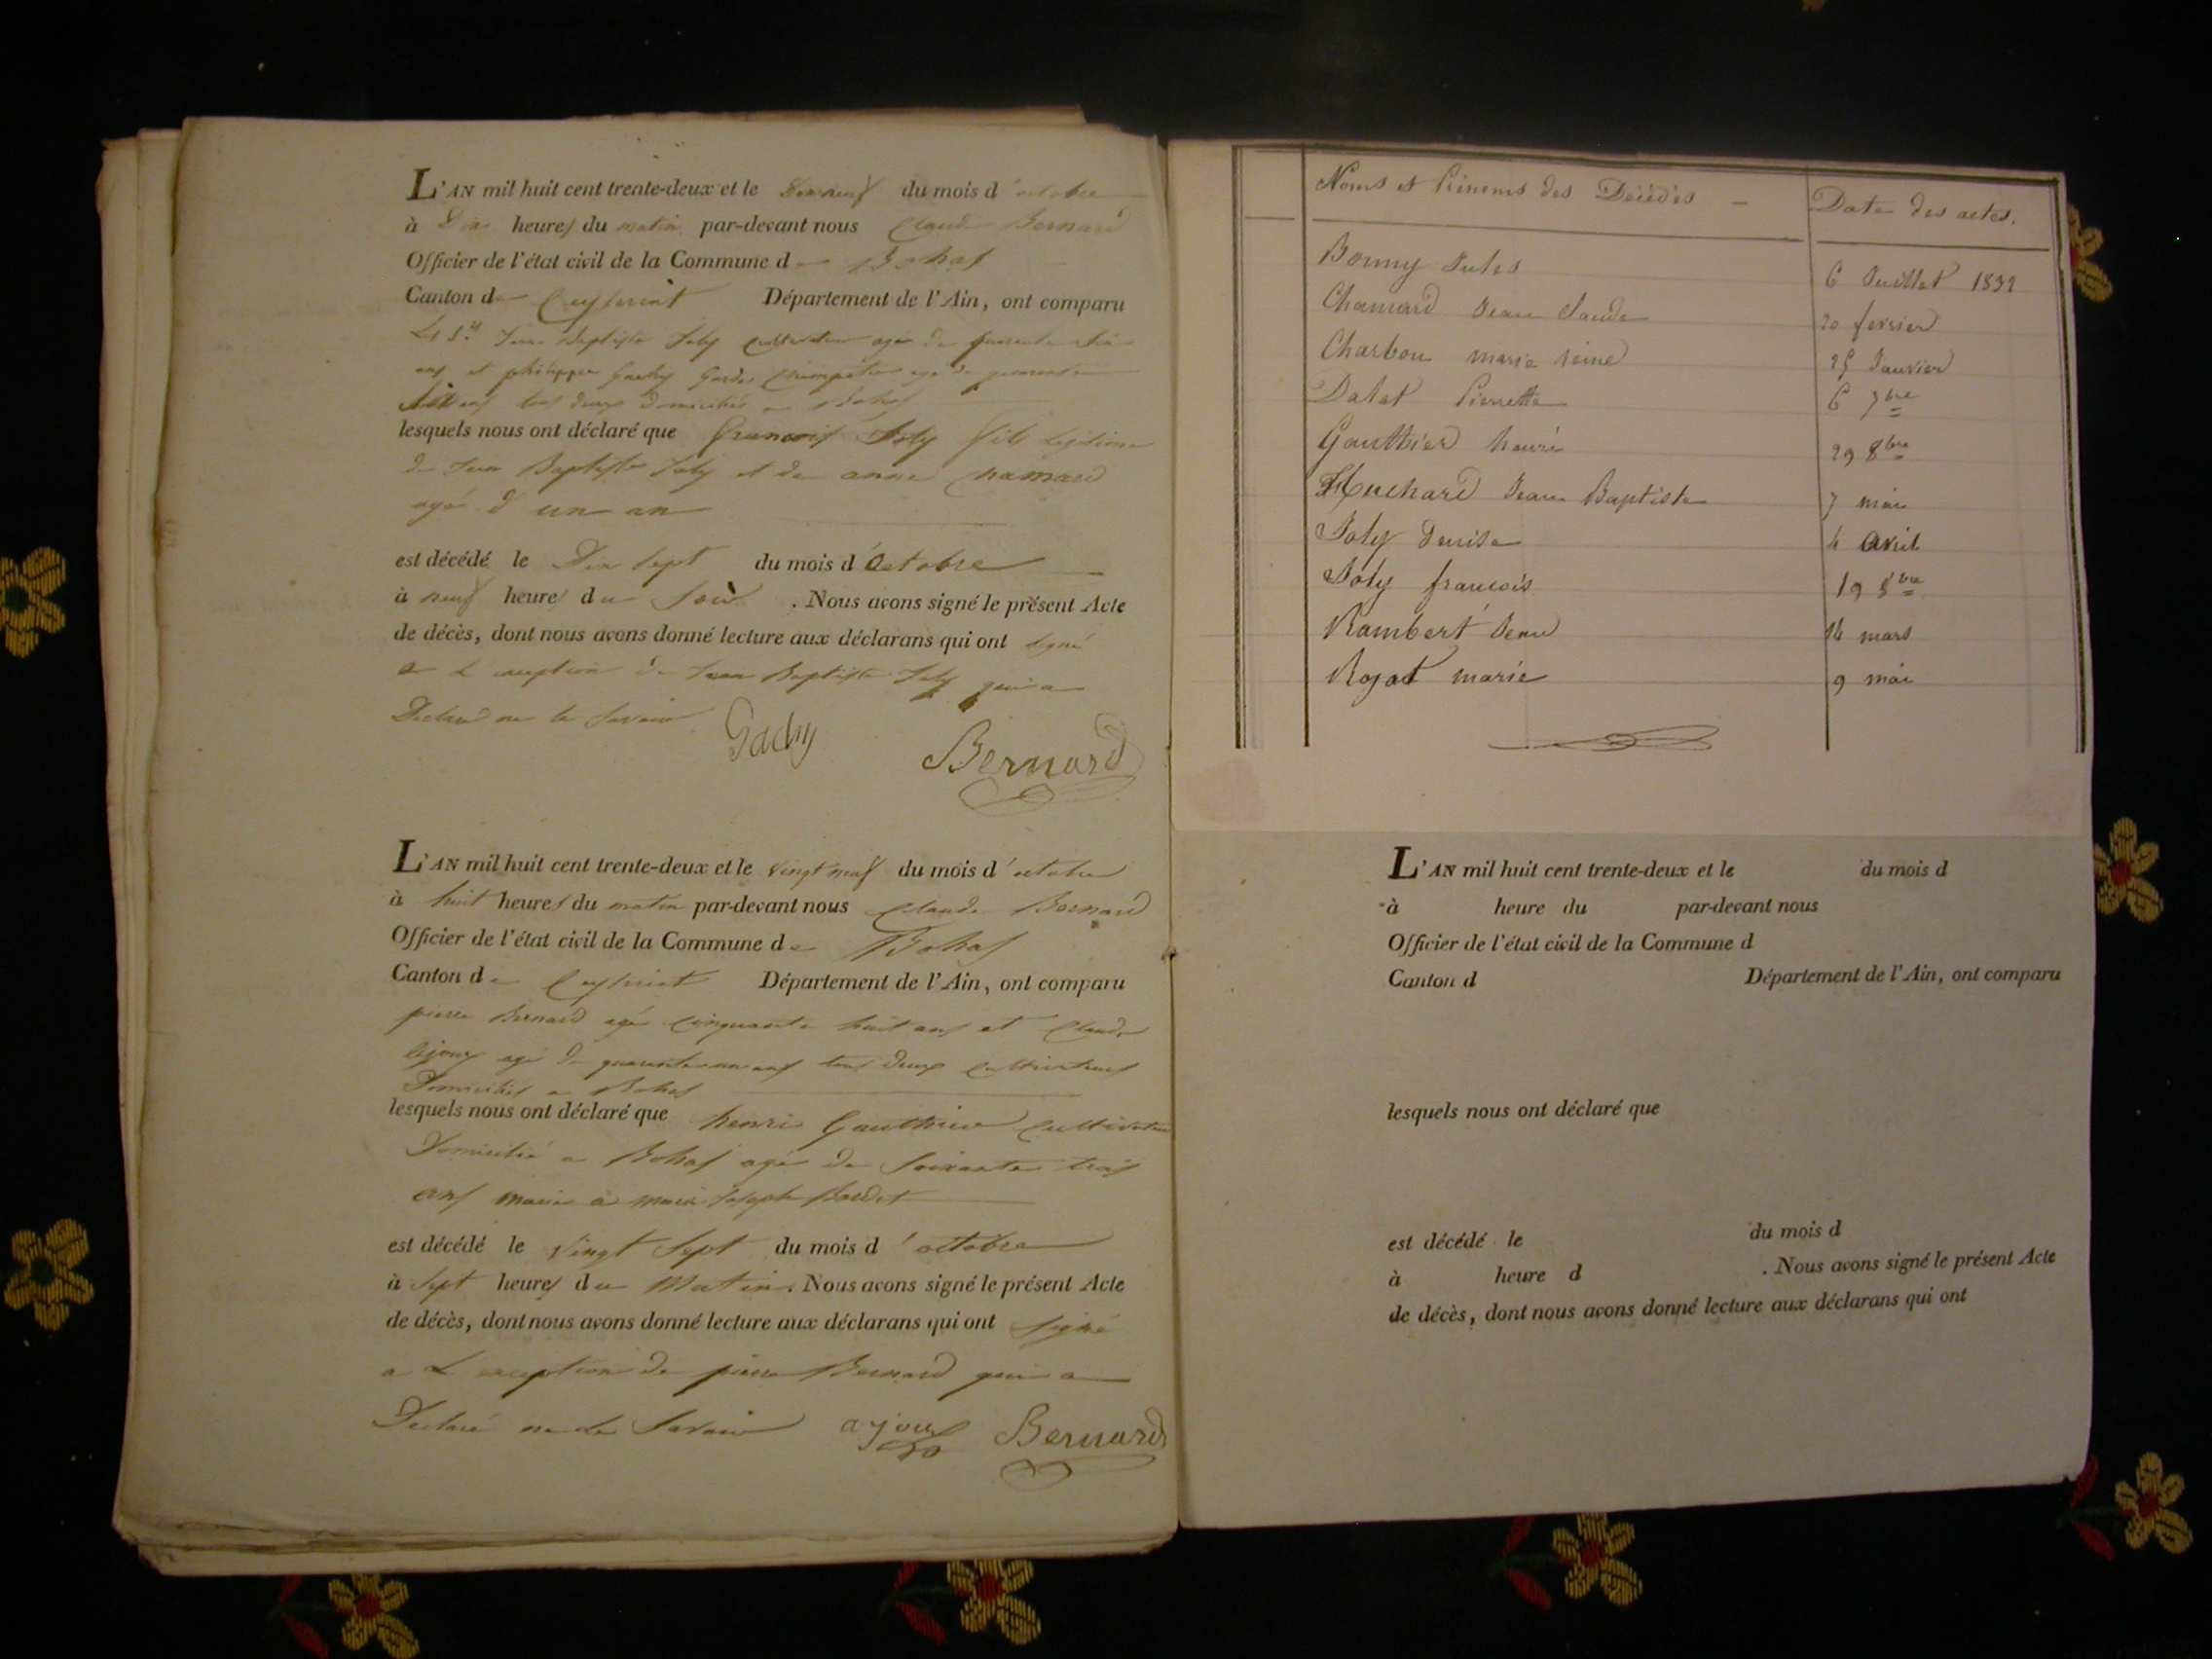 L'AN mil huit cent trente-deux et le Dixneuf du mois d'octobre
à Dix heures du matin par-devant nous Claude Bernard
Officier de l'état civil de la Commune de Bohas
Canton de Ceyseriat Département de l'Ain, ont comparu
Les Srs Jean Baptiste Joly cultivateur agé de quarante six
ans et philippe Gachy Garde Champetre agé de quarante
ans tous deux domiciliés a Bohas
lesquels nous ont déclaré que francois Joly fils legitime
de Jean Baptiste Joly et de anne Chamard
agé d'un an
est décédé le Dix sept du mois d'Octobre
à neuf heures du soir . Nous avons signé le présent Acte
de décès, dont nous avons donné lecture aux déclarans qui ont signé
a L'exception de Jean Baptiste Joly qui a
Declaré ne le Savoir
Gachy
Bernard
L'AN mil huit cent trente-deux et le vingt neuf du mois d'octobre
à huit heures du matin par-devant nous Claude Bernard
Officier de l'état civil de la Commune de Bohas
Canton de Ceyseriat Département de l'Ain, ont comparu
pierre Bernard agé cinquante huit ans et Claude
agé de quarante un ans tous deux cultivateurs
Domiciliés a Bohas
lesquels nous ont déclaré que henri Gauthier cultivateur
Domicilié a Bohas agé de soixante trois
ans marié a marie Joseph
est décédé le vingt sept du mois d'octobre
à sept heures du Matin. Nous avons signé le présent Acte
de décès, dont nous avons donné lecture aux déclarans qui ont signé
a L'exception de pierre Bernard qui a
Declaré ne le Savoir
Bernard
Noms et Prénoms des Décédés - Date des actes.
Bonny Jules 6 Juillet 1832
Chamard Jean Claude 20 fevrier
Charbon marie reine 25 Janvier
Datet Pierrette 6 7bre
Gauthier henri 29 8bre
Huchard Jean Baptiste 7 mai
Joly Denise 4 avril
Joly francois 19 8bre
Rambert Jean 14 mars
Rojat marie 9 mai
L'AN mil huit cent trente-deux et le du mois d
à heure du par-devant nous
Officier de l'état civil de la Commune d
Canton d Département de l'Ain, ont comparu
lesquels nous ont déclaré que
est décédé le du mois d
à heure d . Nous avons signé le présent Acte
de décès, dont nous avons donné lecture aux déclarans qui ont